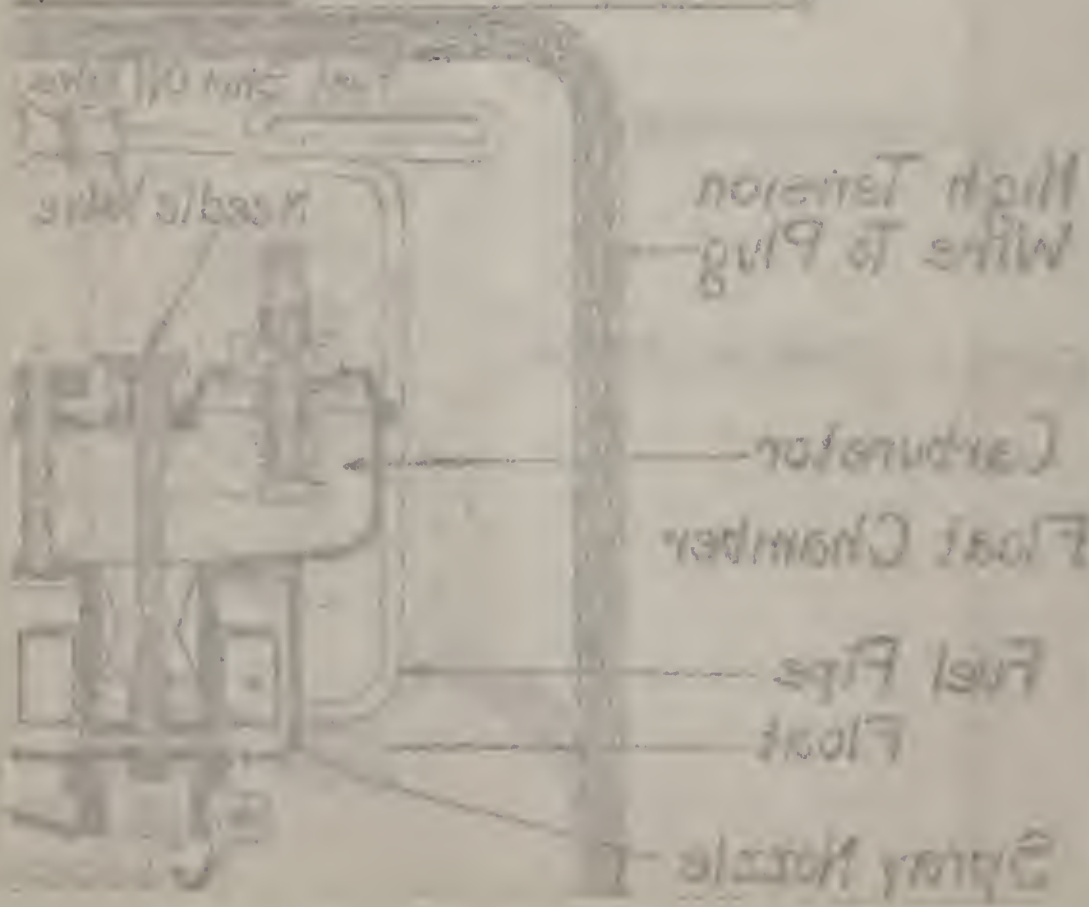 Fuel Shut Off Valve
Needle Valve
High Tension
Wire To Plug
Carburetor
Float Chamber
Fuel Pipe
Float
Spray Nozzle